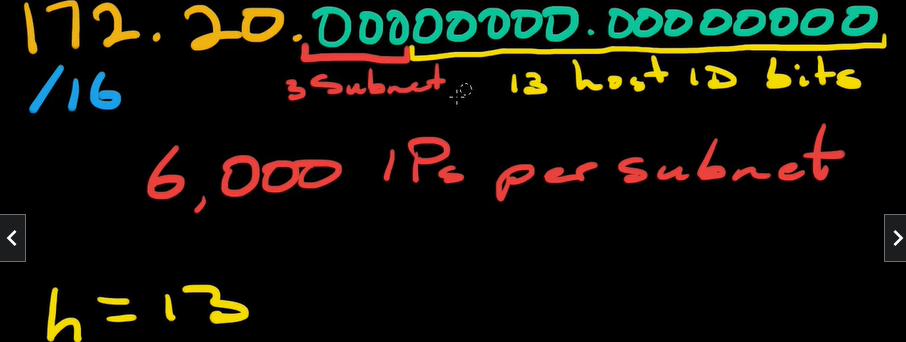 172.20.00000000.00000000
/16 3 Subnet 13 host ID bits
6,000 IPs per subnet
h = 13